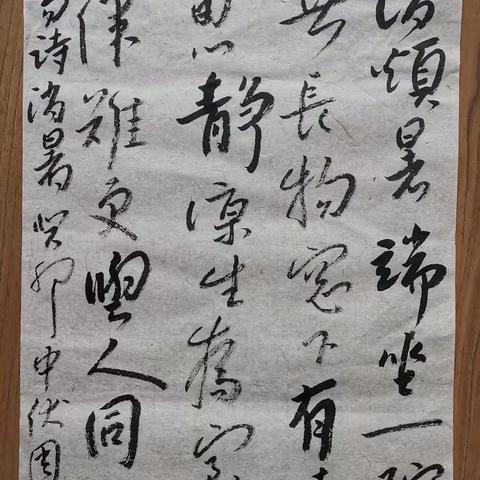 消煩暑端坐一院
無長物窗下有
由心靜涼生為室
保難更與人同
易詩消暑癸卯中伏周